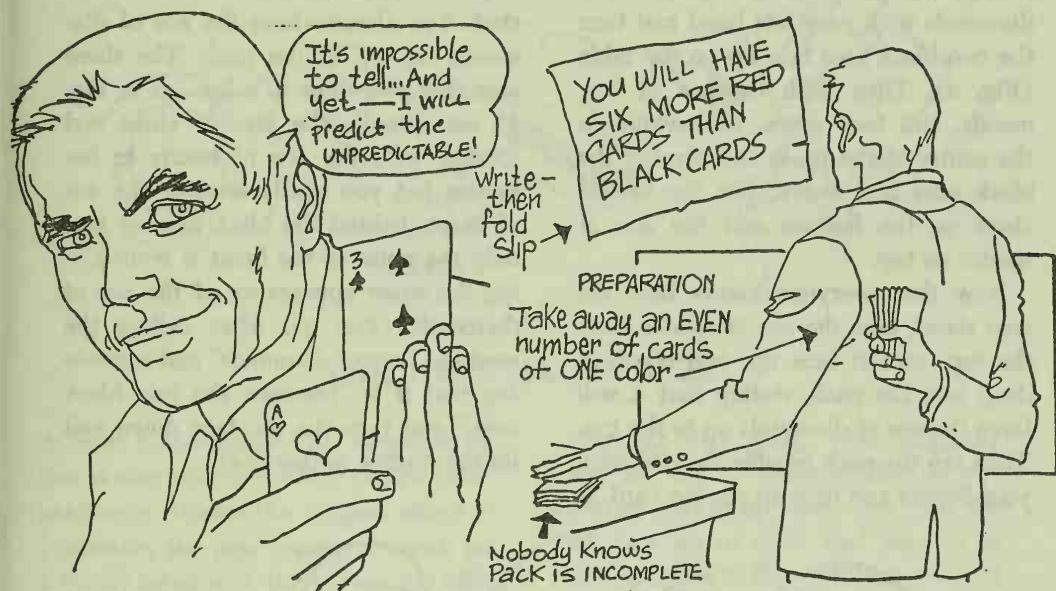 It's impossible
to tell...And
yet — I will
predict the
UNPREDICTABLE!
Write —
then
fold
Slip
YOU WILL HAVE
SIX MORE RED
CARDS THAN
BLACK CARDS
3
A
PREPARATION
Take away an EVEN
number of cards
of ONE color
Nobody Knows
Pack is INCOMPLETE